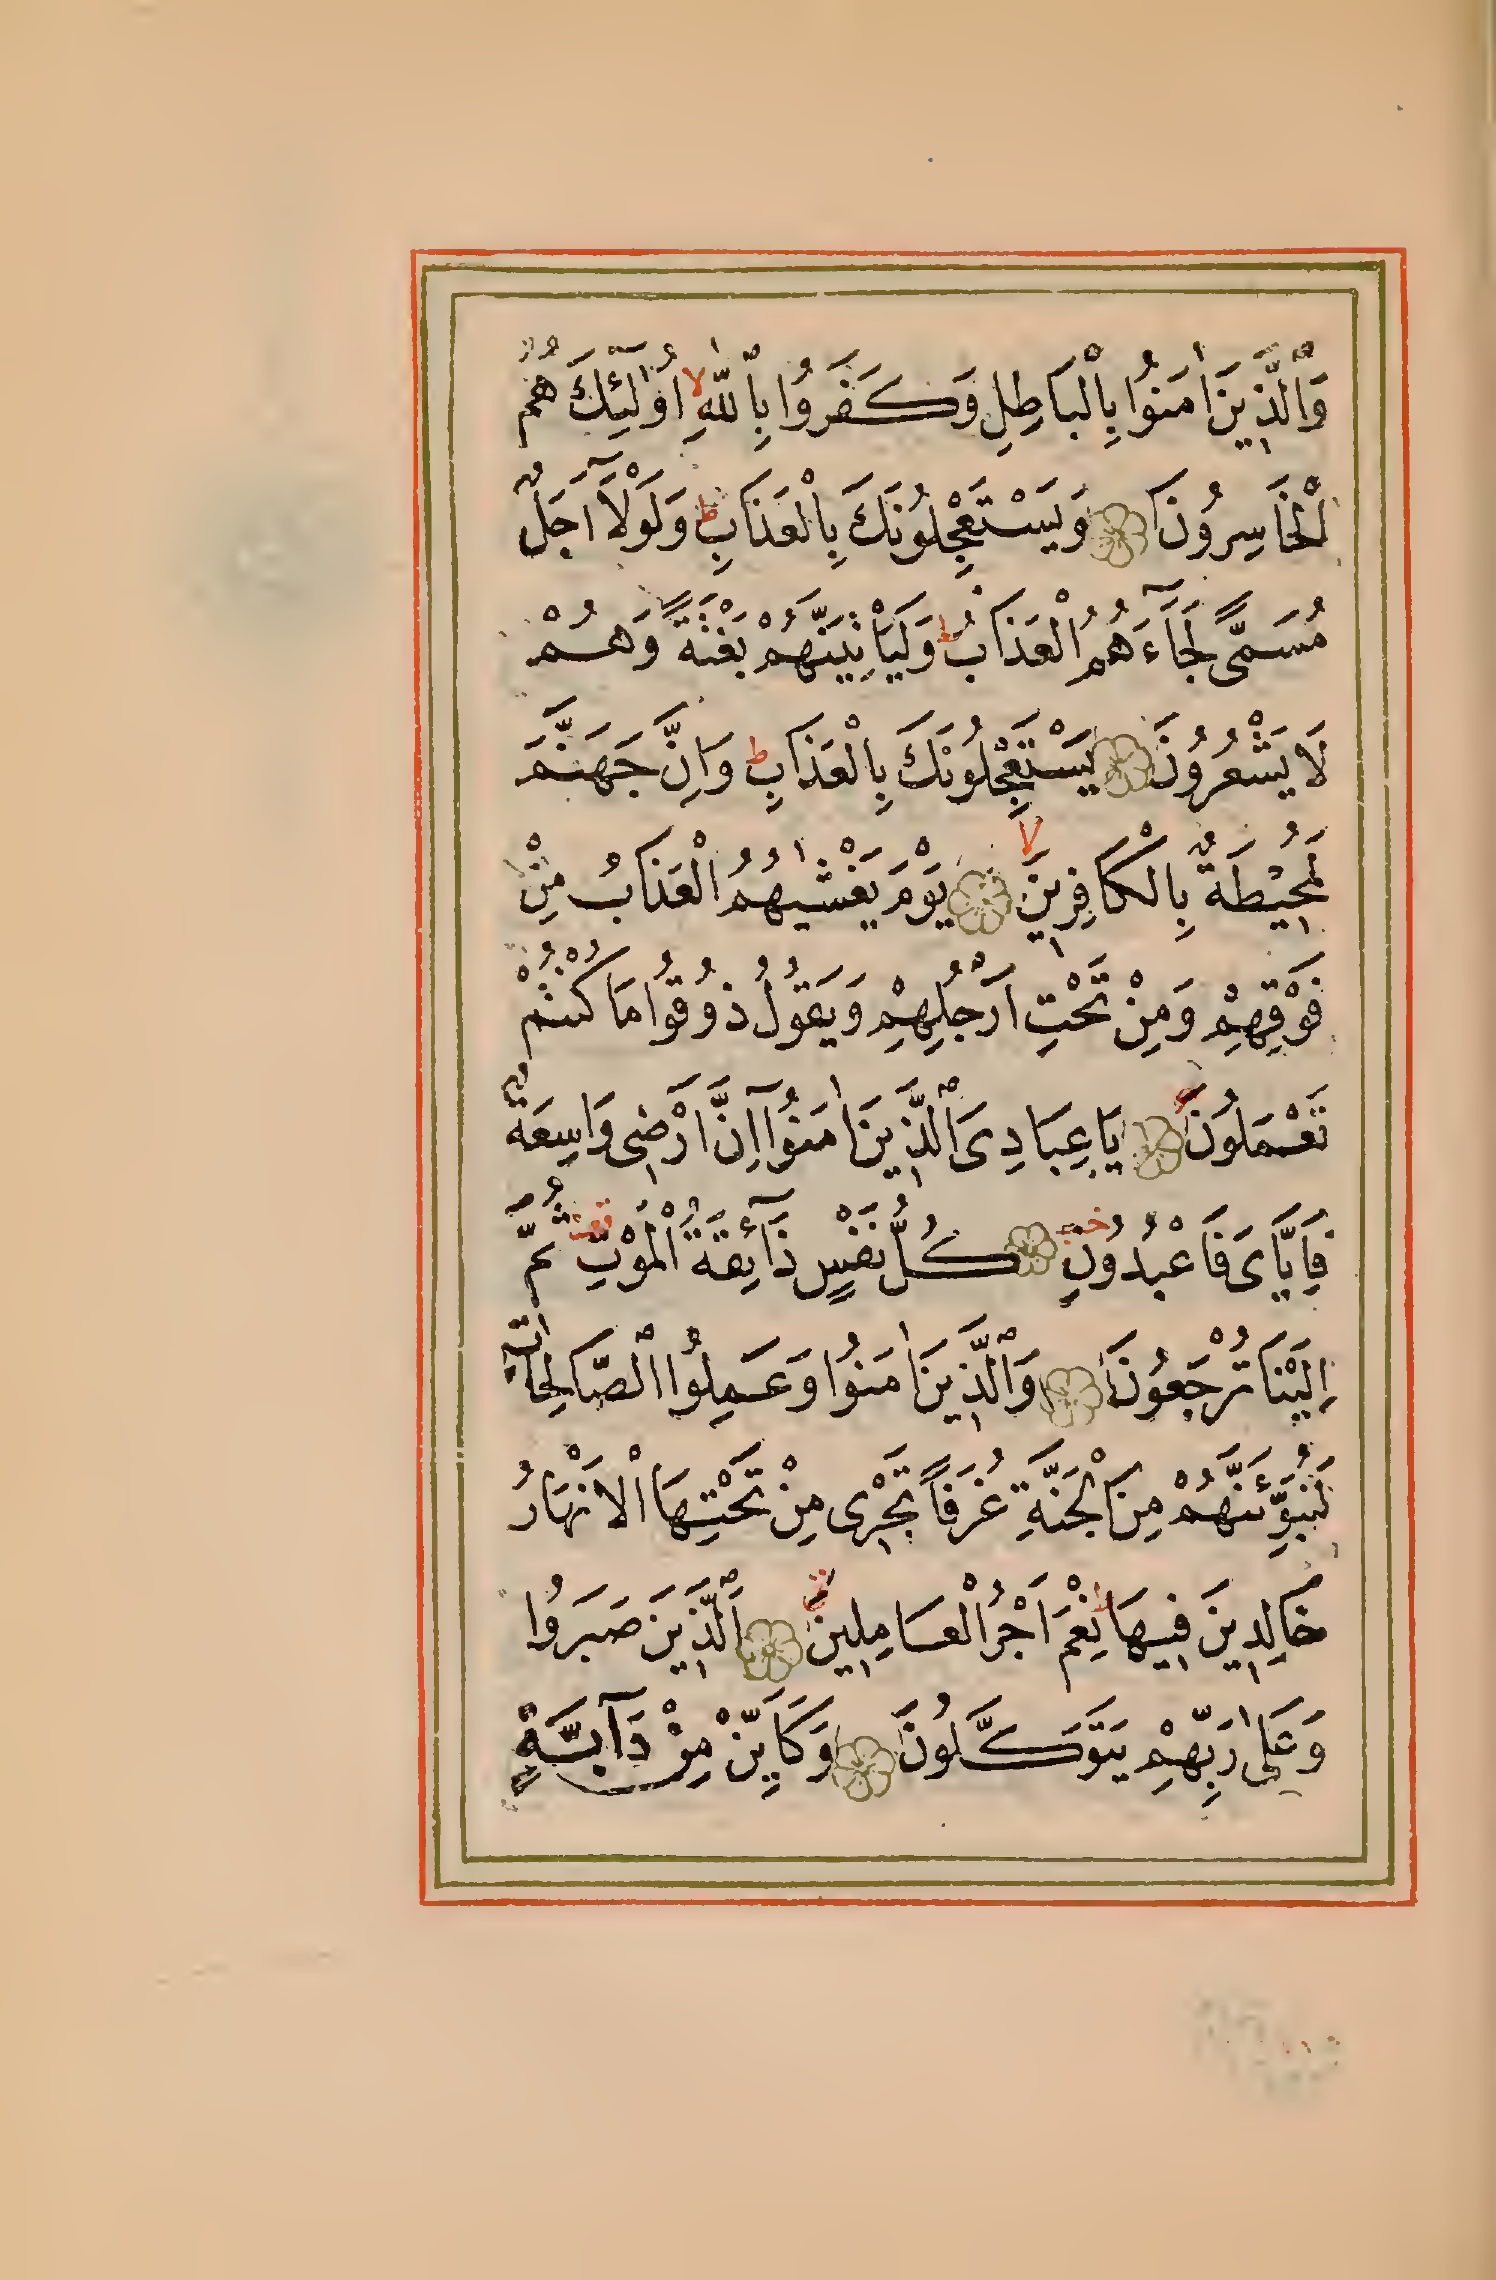 وَالَّذِينَ اٰمَنُوا بِالْبَاطِلِ وَكَفَرُوا بِاللّٰهِ لا اُولٰٓئِكَ هُمُ
الْخَاسِرُونَ وَيَسْتَعْجِلُونَكَ بِالْعَذَابِ ط وَلَوْلَٓا اَجَلٌ
مُسَمًّى لَجَٓاءَهُمُ الْعَذَابُ ط وَلَيَأْتِيَنَّهُمْ بَغْتَةً وَهُمْ
لَا يَشْعُرُونَ يَسْتَعْجِلُونَكَ بِالْعَذَابِ ط وَاِنَّ جَهَنَّمَ
لَمُحِيطَةٌ بِالْكَافِرِينَ لا يَوْمَ يَغْشٰيهُمُ الْعَذَابُ مِنْ
فَوْقِهِمْ وَمِنْ تَحْتِ اَرْجُلِهِمْ وَيَقُولُ ذُوقُوا مَا كُنْتُمْ
تَعْمَلُونَ يَا عِبَادِىَ الَّذِينَ اٰمَنُٓوا اِنَّ اَرْضِى وَاسِعَةٌ
فَاِيَّاىَ فَاعْبُدُونِ كُلُّ نَفْسٍ ذَٓائِقَةُ الْمَوْتِ ثُمَّ
اِلَيْنَا تُرْجَعُونَ وَالَّذِينَ اٰمَنُوا وَعَمِلُوا الصَّالِحَاتِ
لَنُبَوِّئَنَّهُمْ مِنَ الْجَنَّةِ غُرَفًا تَجْرِى مِنْ تَحْتِهَا الْاَنْهَارُ
خَالِدِينَ فِيهَا ط نِعْمَ اَجْرُ الْعَامِلِينَ اَلَّذِينَ صَبَرُوا
وَعَلٰى رَبِّهِمْ يَتَوَكَّلُونَ وَكَاَيِّنْ مِنْ دَٓابَّةٍ